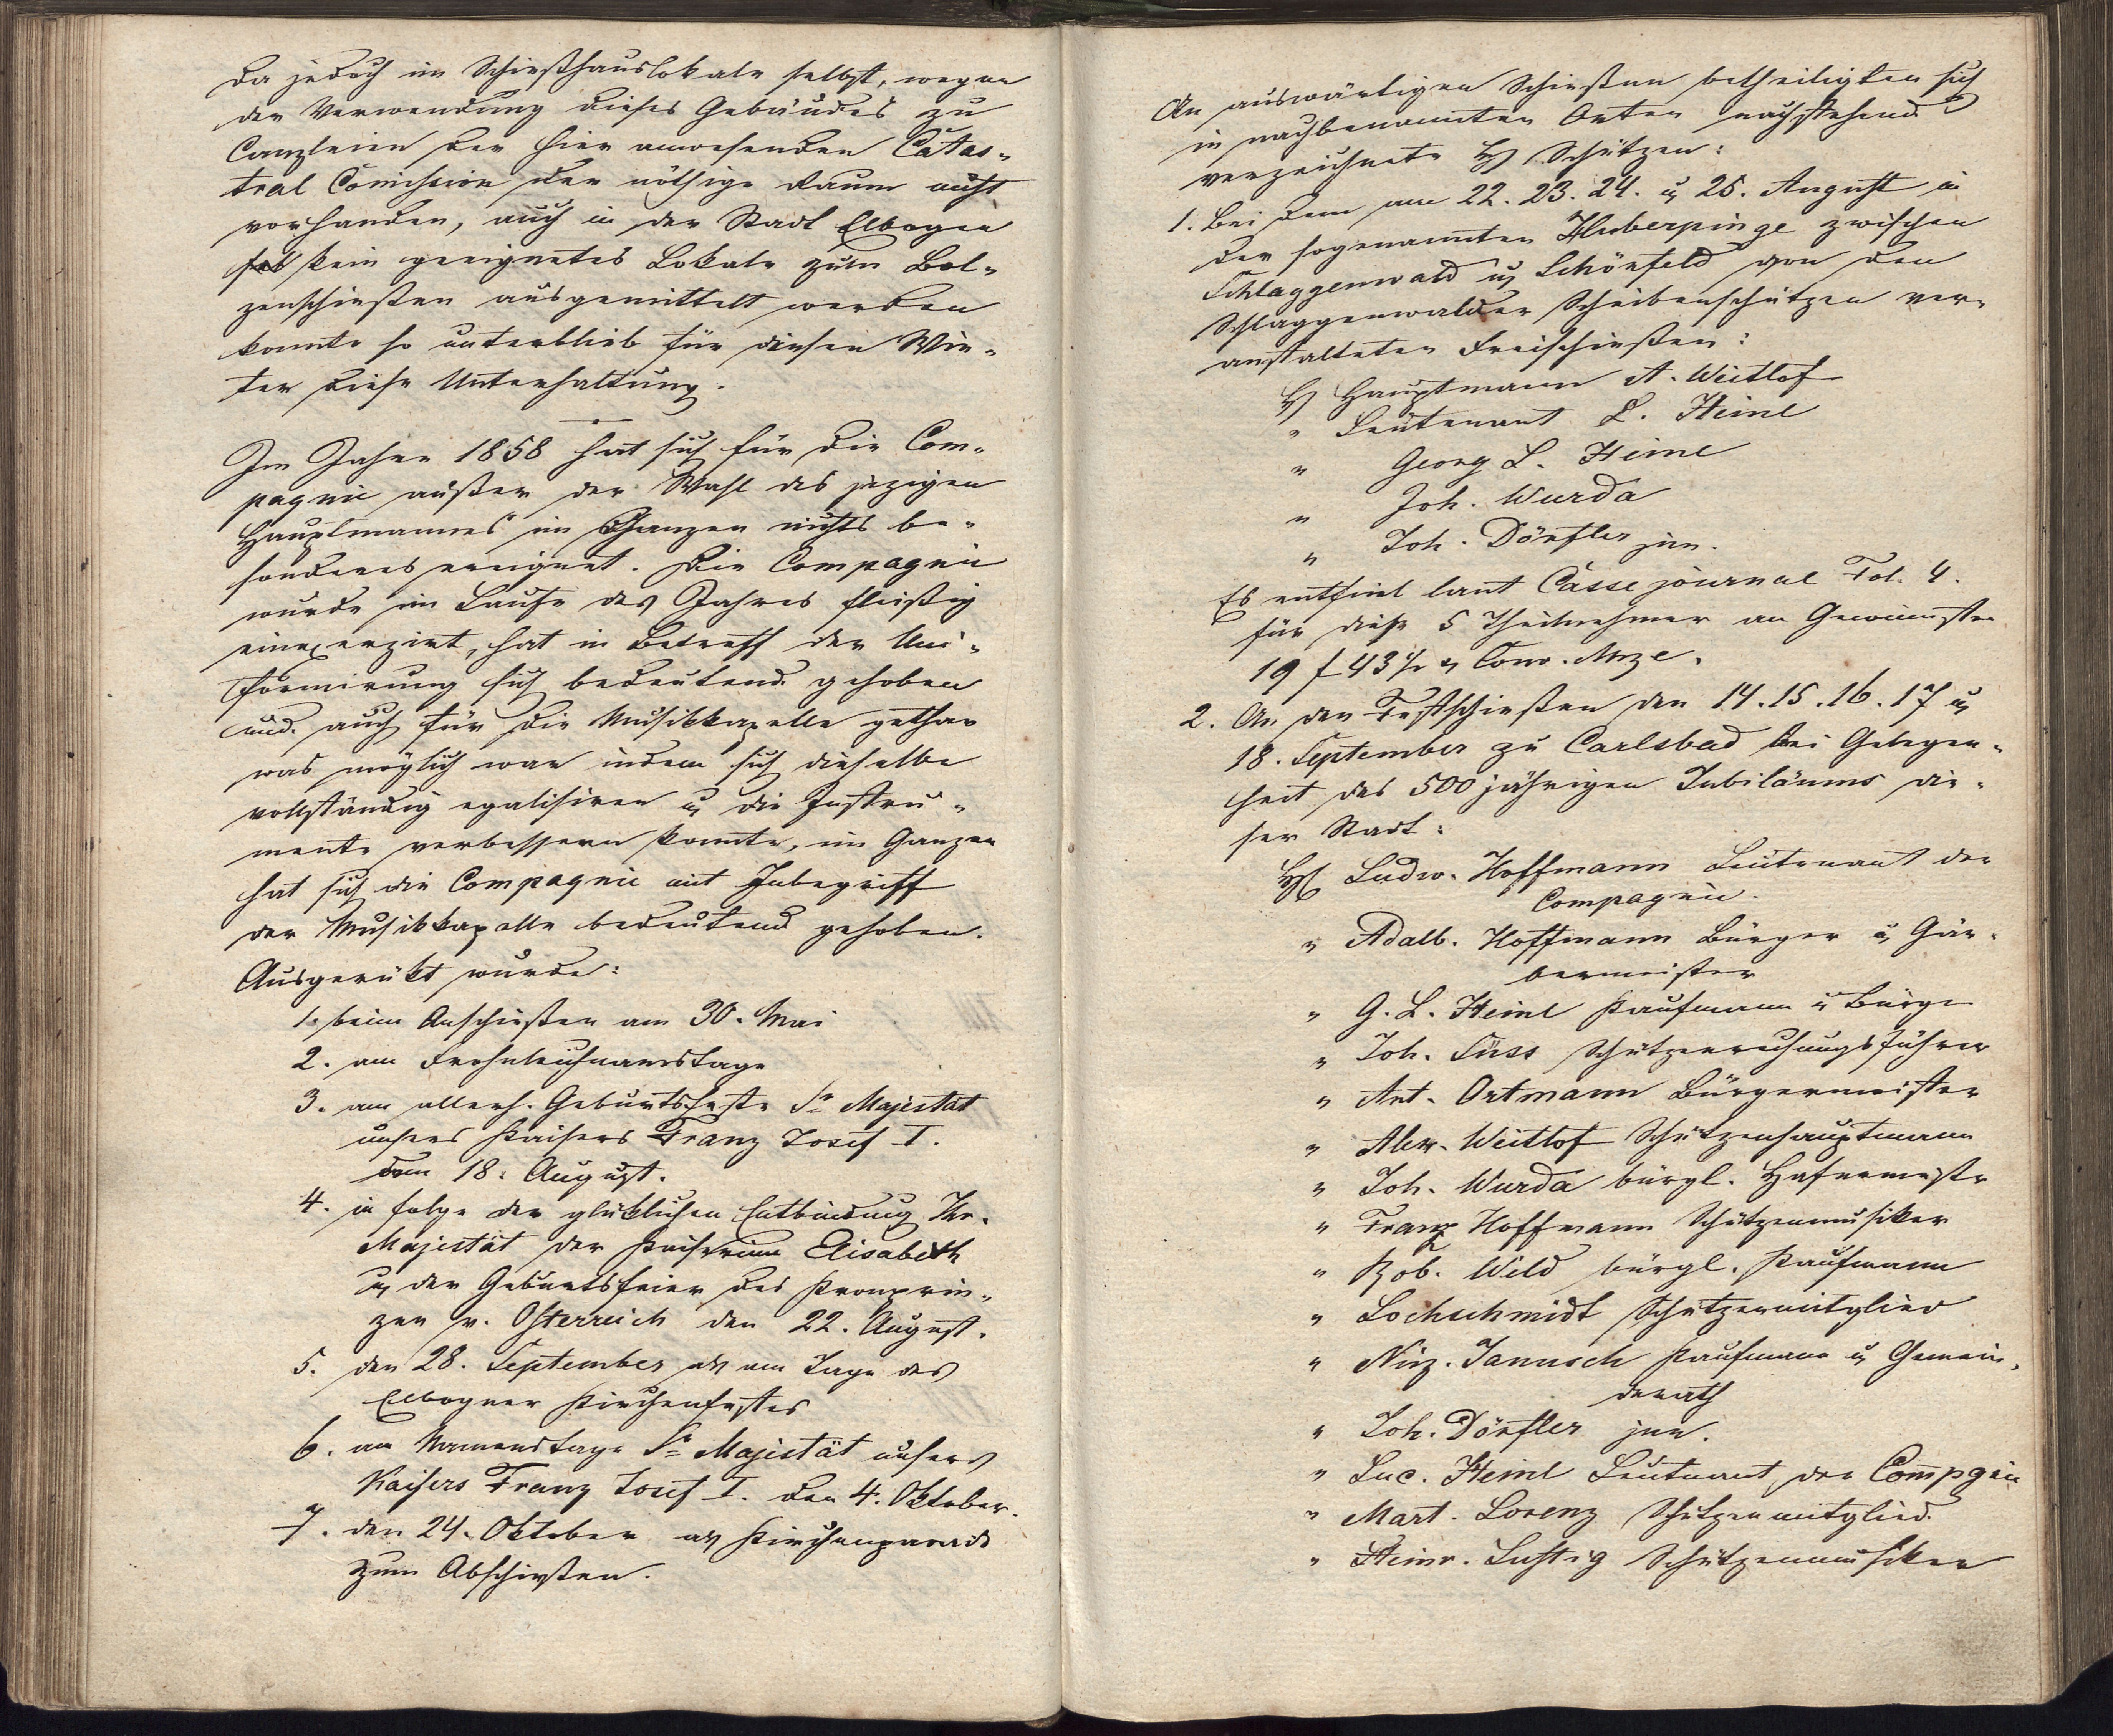 Da jedoch im Schießhauslokale selbst, wegen
der Verwendung dieses Gebäudes zu
Canzleien der hier anwesenden Catas-
tral Comission der nöthige Raum nicht
vorhanden, auch in der Stadt Elbogen
kein geeignetes Lokale zum Bol-
zenschießen ausgemittelt werden
konnte so unterblieb für diesen Win-
ter diese Unterhaltung.
Im Jahre 1858 hat sich für die Com-
pagnie außer der Wahl des jezigen
Hauptmannes im Ganzen nichts be-
sonderes ereignet. Die Compagnie
wurde im Laufe des Jahres fleißig
einexerzirt, hat in Betreff der Uni-
formirung sich bedeutend gehoben
und auch für die Musikkapelle gethan
was möglich war indem sich dieselbe
vollständig egalisiren u. die Instru-
mente verbessern konnte, im Ganzen
hat sich die Compagnie mit Inbegriff
der Musikkapelle bedeutend gehoben.
Ausgerükt wurde:
1. beim Anschießen am 30. Mai
2. am Frohnleichnamstage
3. am allerh. Geburtsfeste Sr Majestät
unsers Kaisers Franz Josef I.
den 18. August.
4. in folge der glüklichen Entbindung Ihr.
Majestät der Kaiserinn Elisabeth
u. der Geburtsfeier des Kronprin-
zen v. Österreich den 22. August.
5. den 28. September als am Tage des
Elbogner Kirchenfestes
6. am Namenstage Sr Majestät unsers
Kaisers Franz Josef I. den 4. Oktober.
7. den 24. Oktober als Kirchenparade
zum Abschießen.
An auswärtigen Schießen betheiligten sich
in nachbenannten Orten nachstehend
verzeichnete H Schützen:
1. Bei dem am 22. 23. 24. u. 25. August in
der sogenannten Huberpinge zwischen
Schlaggenwald u. Schönfeld von den
Schlaggenwalder Scheibenschützen ver-
anstalteten Freischießen:
H Hauptmann A. Weitlof
" Leutenant L. Heinl
" Georg L. Heinl
" Joh. Wurda
" Joh. Dörfler jun.
Es entfiel laut Casse journal Fol. 4.
für diese 5 Theilnehmer an Gewinnsten
19 f 43 Conv. Mze.
2. An den Festschießen den 14. 15. 16. 17 u.
18. September zu Carlsbad bei Gelegen-
heit des 500 jährigen Jubiläums die-
ser Stadt:
H Ludw. Hoffmann Leutenant der
Compagnie.
" Adalb. Hoffmann Bürger u. Gär-
bermeister
" G. L. Heinl Kaufmann u Bürger
" Joh. Süss Schützenrechnungsführer
" Ant. Ortmann Bürgermeister
" Alex. Weitlof Schützenhauptmann
" Joh. Wurda bürgl. Hafnermeister
" Franz Hoffmann Schützenmusiker
" Rob. Wild bürgl. Kaufmann
" Lochschmidt Schützenmitglied
" Vinz. Janusch Kaufmann u. Gemein-
derath
" Joh. Dörfler jun.
" Luc. Heinl Leutnant der Compgnie
" Mart. Lorenz Schützenmitglied
" Heinr. Lustig Schützenmusiker